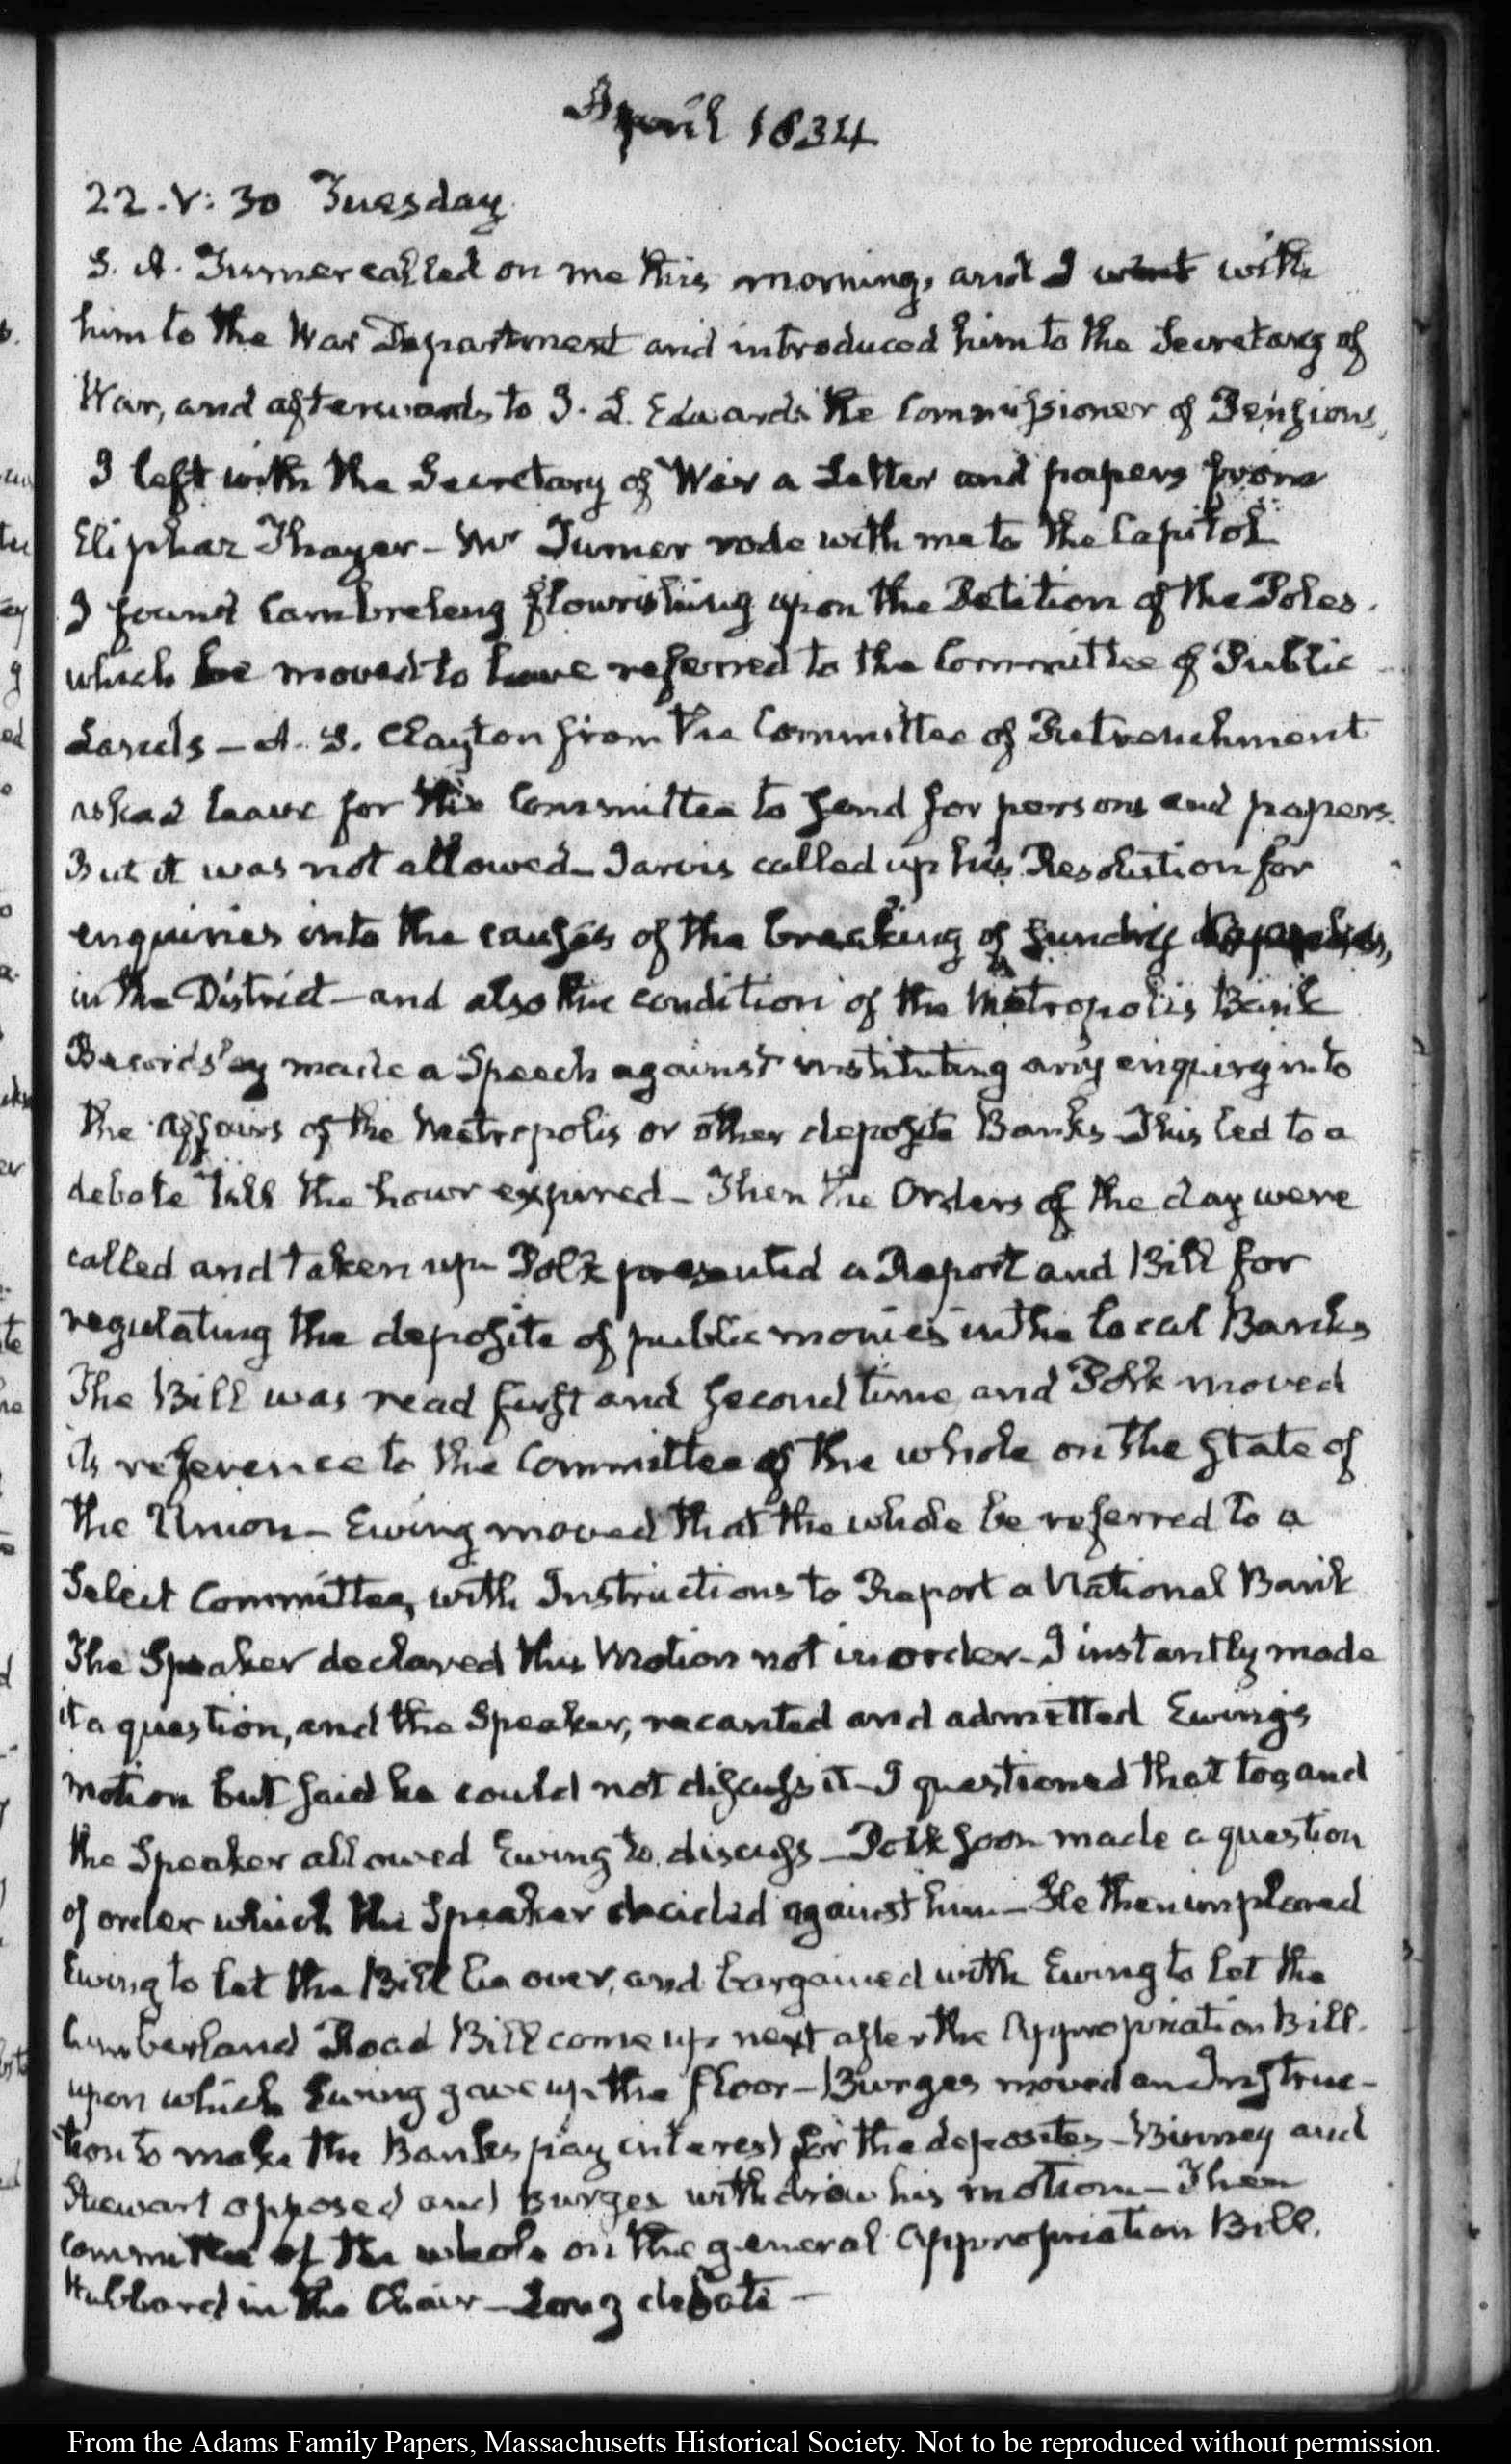 April 1834
22. V: 30 Tuesday.
S. A. Turner called on me this morning, and I went with
him to the War Department and introduced him to the Secretary of
War, and afterwards to J. L. Edwards the Commissioner of Pensions,
I left with the Secretary of War a Letter and papers from
Eliphaz Thayer – Mr Turner rode with me to the Capitol
I found Cambreleng flourishing upon the Petition of the Poles.
which he moved to have referred to the Committee of Public
Lands – A. S. Clayton from the Committee of Retrenchment
asked leave for the Committee to send for persons and papers.
But it was not allowed – Jarvis called up his Resolution for
enquiries into the causes of the breaking of sundry
in the District – and also the condition of the Metropolis Bank
Beardsley made a Speech against instituting any enquiry into
the affairs of the Metropolis or other deposite Banks – This led to a
debate till the hour expired – Then the Orders of the day were
called and taken up – Polk presented a Report and Bill for
regulating the deposite of public monies in the local Banks
The Bill was read first and second time, and Polk moved
its reference to the Committee of the whole on the state of
the Union – Ewing moved that the whole be referred to a
Select Committee, with Instructions to Report a National Bank
The Speaker declared this Motion not in order – I instantly made
it a question, and the Speaker, recanted and admitted Ewing's
motion but said he could not discuss it – I questioned that too, and
the Speaker allowed Ewing to discuss – Polk soon made a question
of order which the Speaker decided against him – He then implored
Ewing to let the Bill lie over, and bargained with Ewing to let the
Cumberland Road Bill come up next after the Appropriation Bill.
upon which Ewing gave up the floor – Burges moved an Instruc-
tion to make the Banks pay interest for the deposites – Binney and
Stewart opposed and Burges withdrew his motion – Then
committee of the whole on the general Appropriation Bill.
Hubbard in the Chair – Long debate –
From the Adams Family Papers, Massachusetts Historical Society. Not to be reproduced without permission.